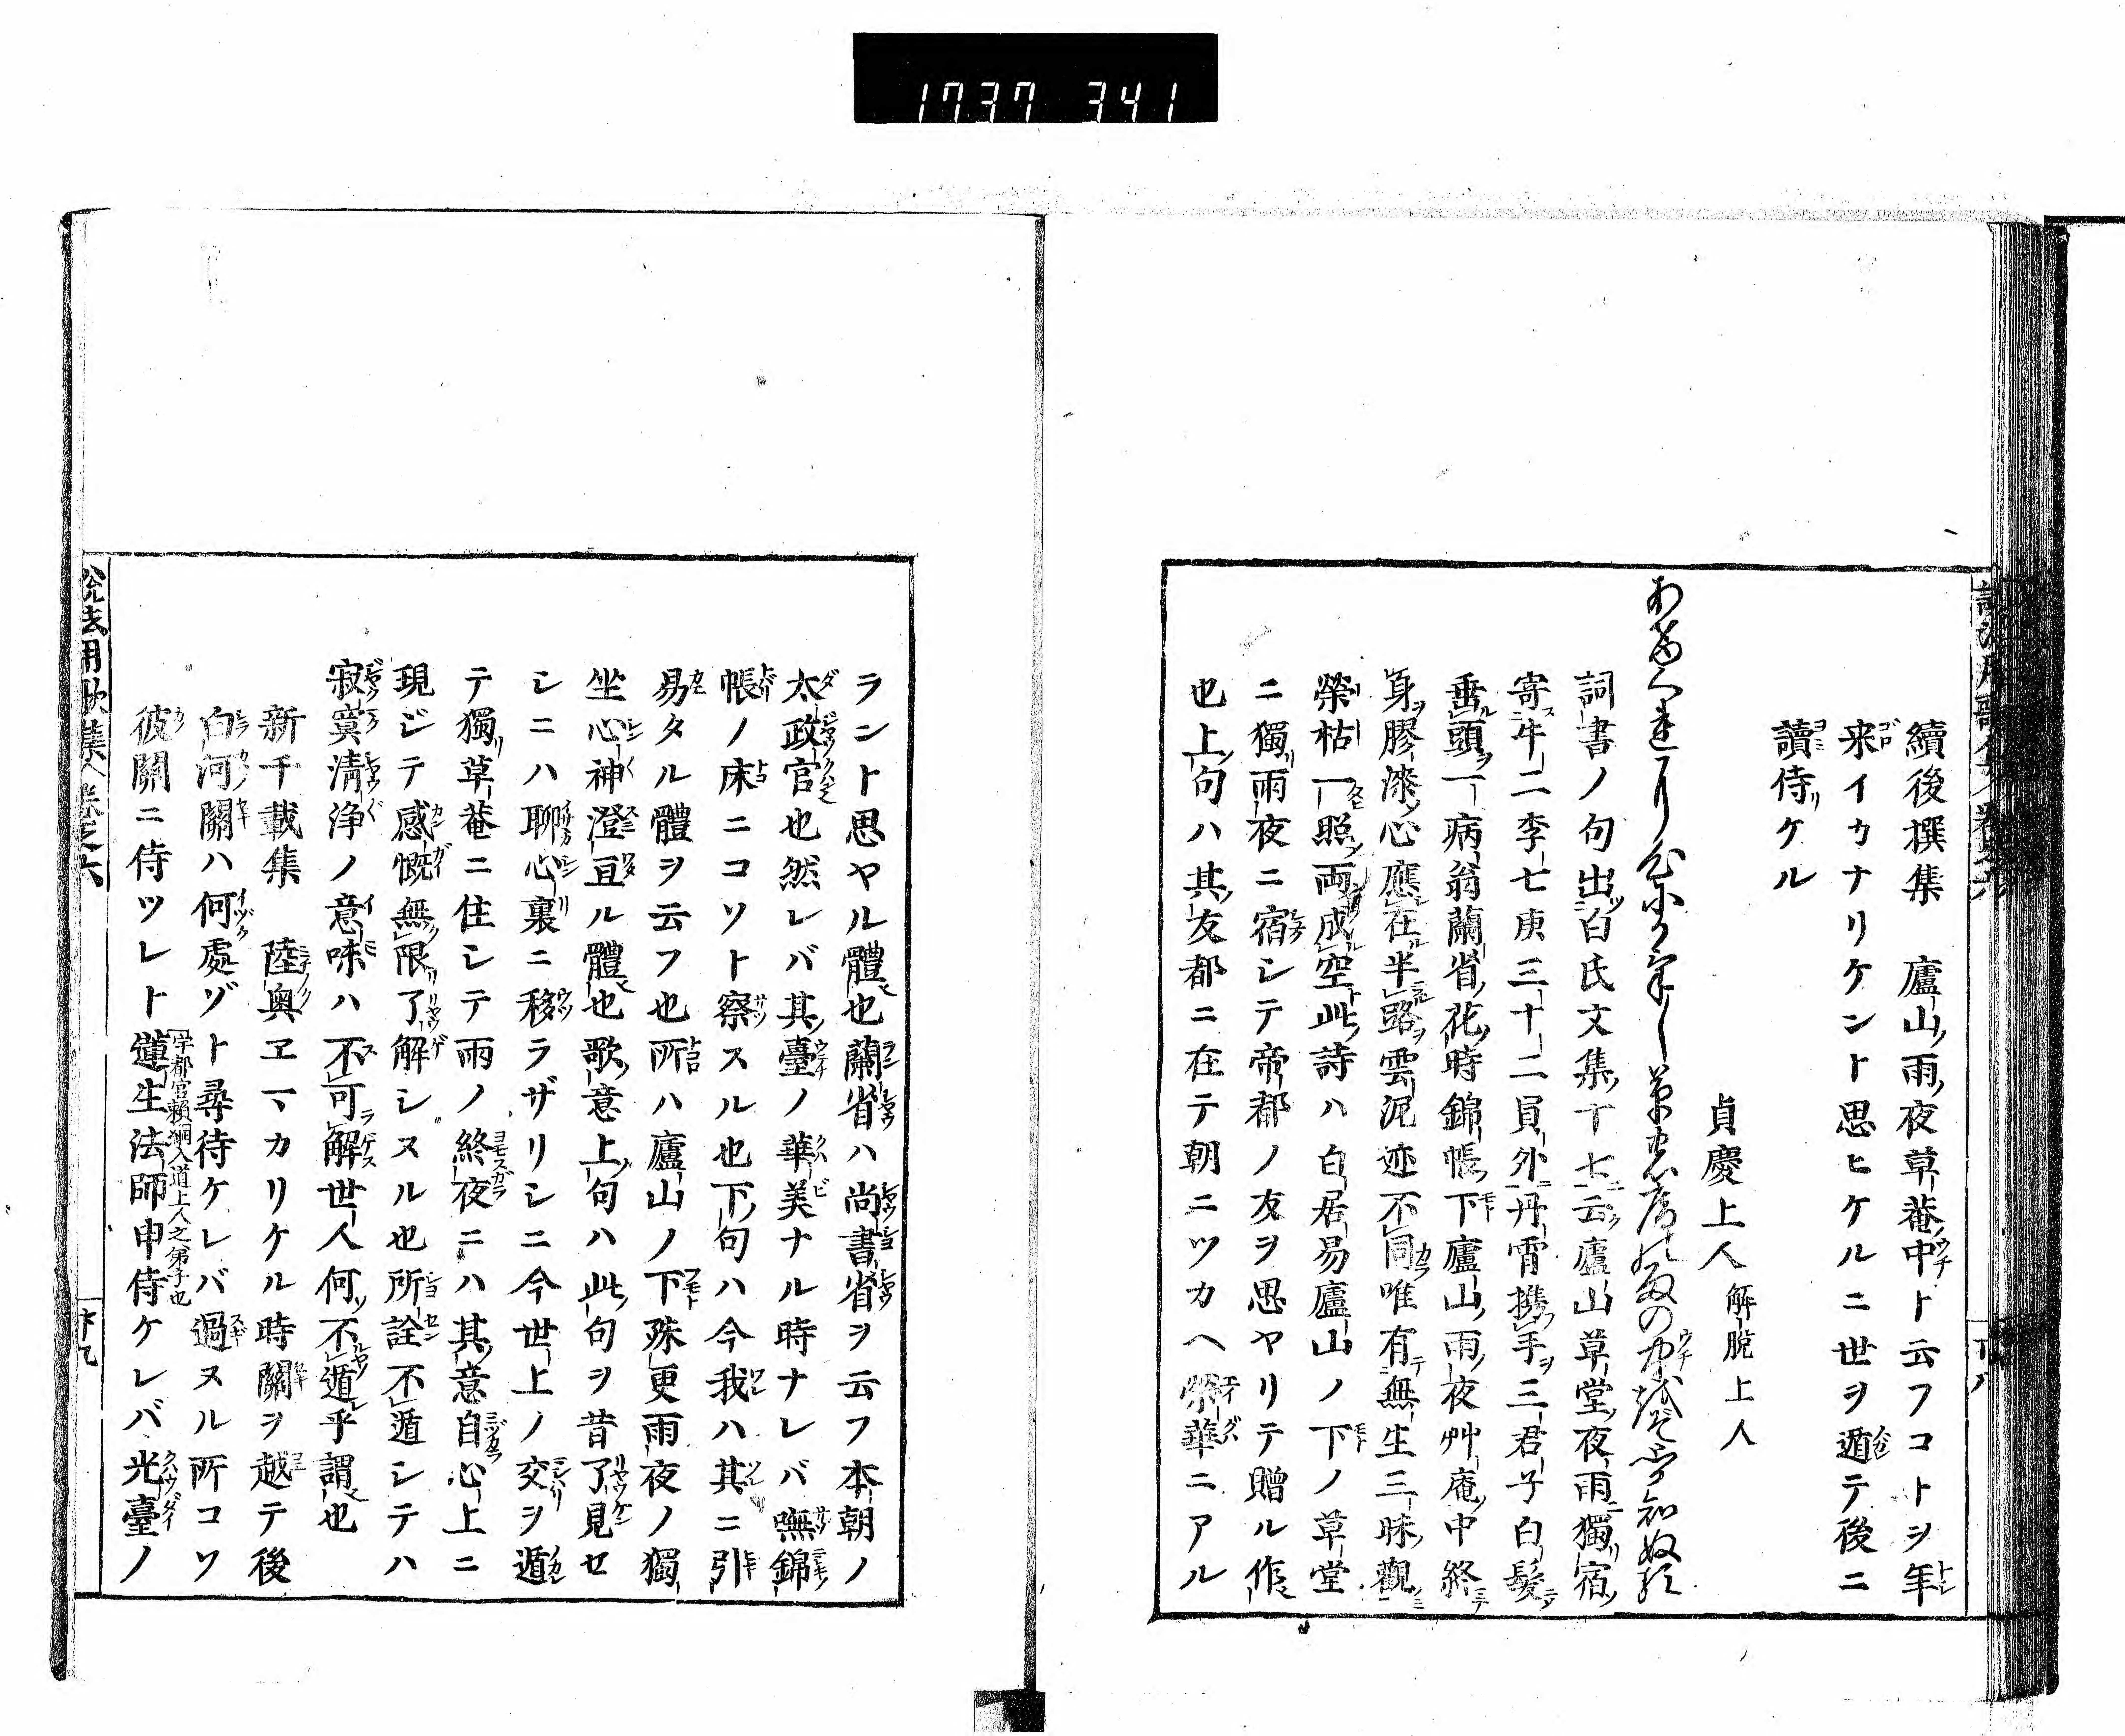 1737 341
續後撰集 廬山雨夜草菴中ト云フコトヲ年
来イカナリケント思ヒケルニ世ヲ遁テ後ニ
讀侍ケル
貞慶上人 解脱上人
詞書ノ句出白氏文集十七云廬山草堂夜雨獨宿
寄牛二李七庚三十二員外丹霄携手三君子白髪
垂頭一病翁蘭省花時錦帳下廬山雨夜艸庵中終
身膠漆心應在半路雲泥迹不同唯有無生三昧觀
榮枯一照両成空此詩ハ白居易廬山ノ下ノ草堂
ニ獨雨夜ニ宿シテ帝都ノ友ヲ思ヤリテ贈ル作
也上句ハ其友都ニ在テ朝ニツカヘ榮華ニアル
ラント思ヤル體也蘭省ハ尚書省ヲ云フ本朝ノ
太政官也然レバ其臺ノ華美ナル時ナレバ嘸錦
帳ノ床ニコソト察スル也下句ハ今我ハ其ニ引
易タル體ヲ云フ也所ハ廬山ノ下殊更雨夜ノ獨
坐心神澄亘ル體也歌意上句ハ此句ヲ昔了見セ
シニハ聊心裏ニ移ラザリシニ今世上ノ交ヲ遁
テ獨草菴ニ住シテ雨ノ終夜ニハ其意自心上ニ
現ジテ感慨無限了解シヌル也所詮不遁シテハ
寂寞清浄ノ意味ハ不可解世人何不遁乎謂也
新千載集 陸奥ヱマカリケル時關ヲ越テ後
白河關ハ何處ゾト尋待ケレバ過ヌル所コソ
彼關ニ侍ツレト蓮生法師申侍ケレバ光臺ノ
宇都宮頼綱入道上人之弟子也
説法用歌集 巻之六
廿九